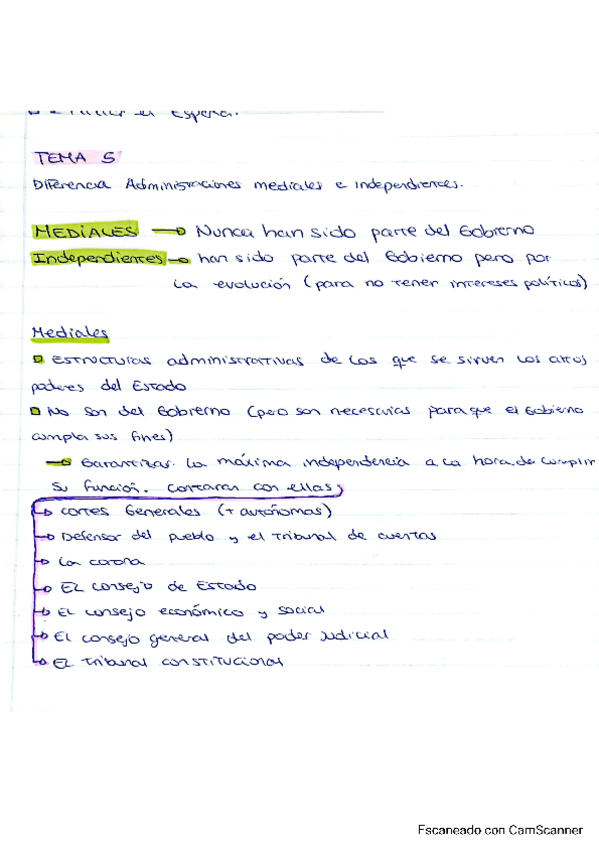 el España.
TEMA 5
Diferencia Administraciones mediales e independientes.
MEDIALES → Nunca han sido parte del Gobierno
Independientes → han sido parte del Gobierno pero por
la evolución (para no tener intereses políticos)
Mediales
estructuras administrativas de los que se sirven los otros
poderes del Estado
No son del Gobierno (pero son necesarias para que el Gobierno
cumpla sus fines)
→ Garantizar la máxima independencia a la hora de cumplir
su función. Contaran con ellas
→ Cortes Generales (+ autónomas)
→ Defensor del pueblo y el tribunal de cuentas
→ La corona
→ EL consejo de Estado
→ EL consejo económico y social
→ EL consejo general del poder judicial
→ EL tribunal constitucional
Escaneado con CamScanner